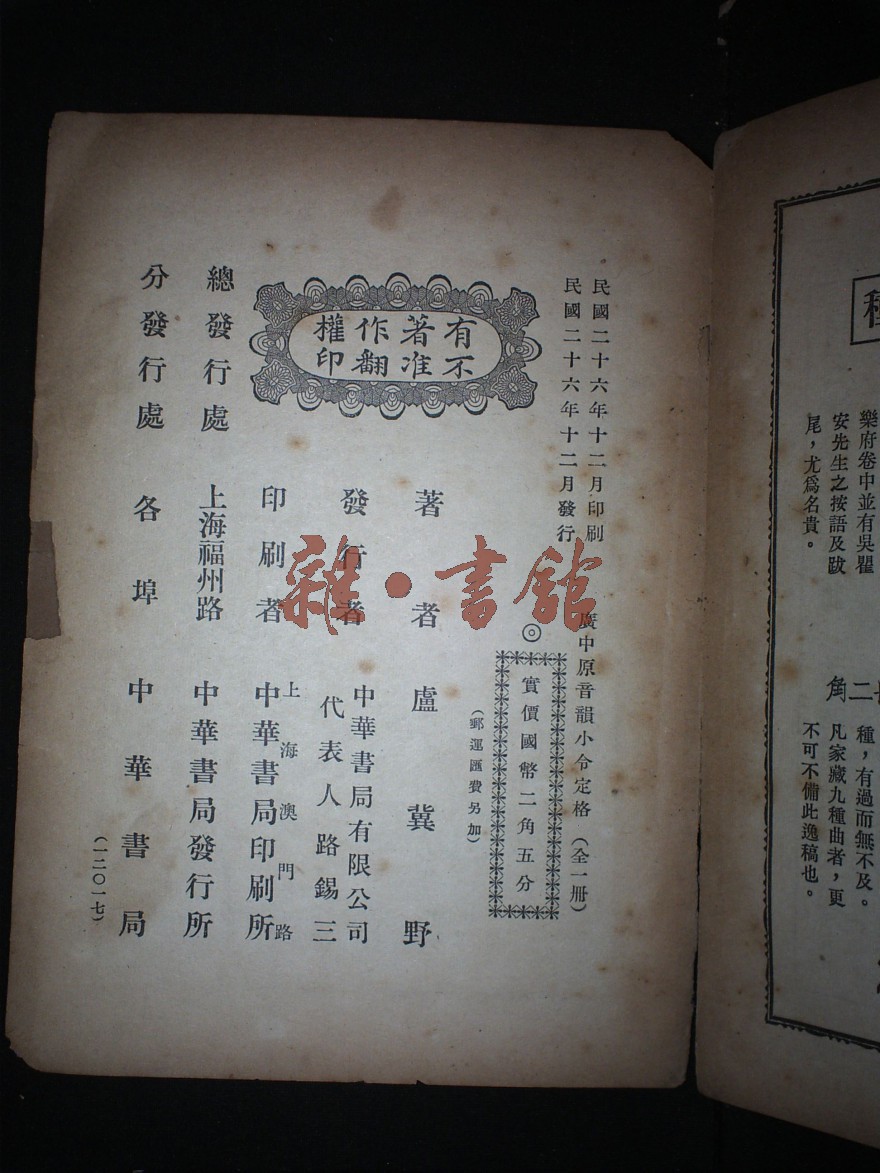 種
樂府卷中並有吳瞿
安先生之按語及跋
尾，尤爲名貴。
二角
種，有過而無不及。
凡家藏九種曲者，更
不可不備此逸稿也。
民國二十六年十二月印刷
民國二十六年十二月發行
廣中原音韻小令定格（全一册）
◎
實價國幣二角五分
（郵運匯費另加）
有著作權
不准翻印
著者盧冀野
發行者
中華書局有限公司
代表人路錫三
印刷者
上海澳門路
中華書局印刷所
總發行處
上海福州路
中華書局發行所
分發行處
各埠中華書局
（一二〇一七）
雜·書館